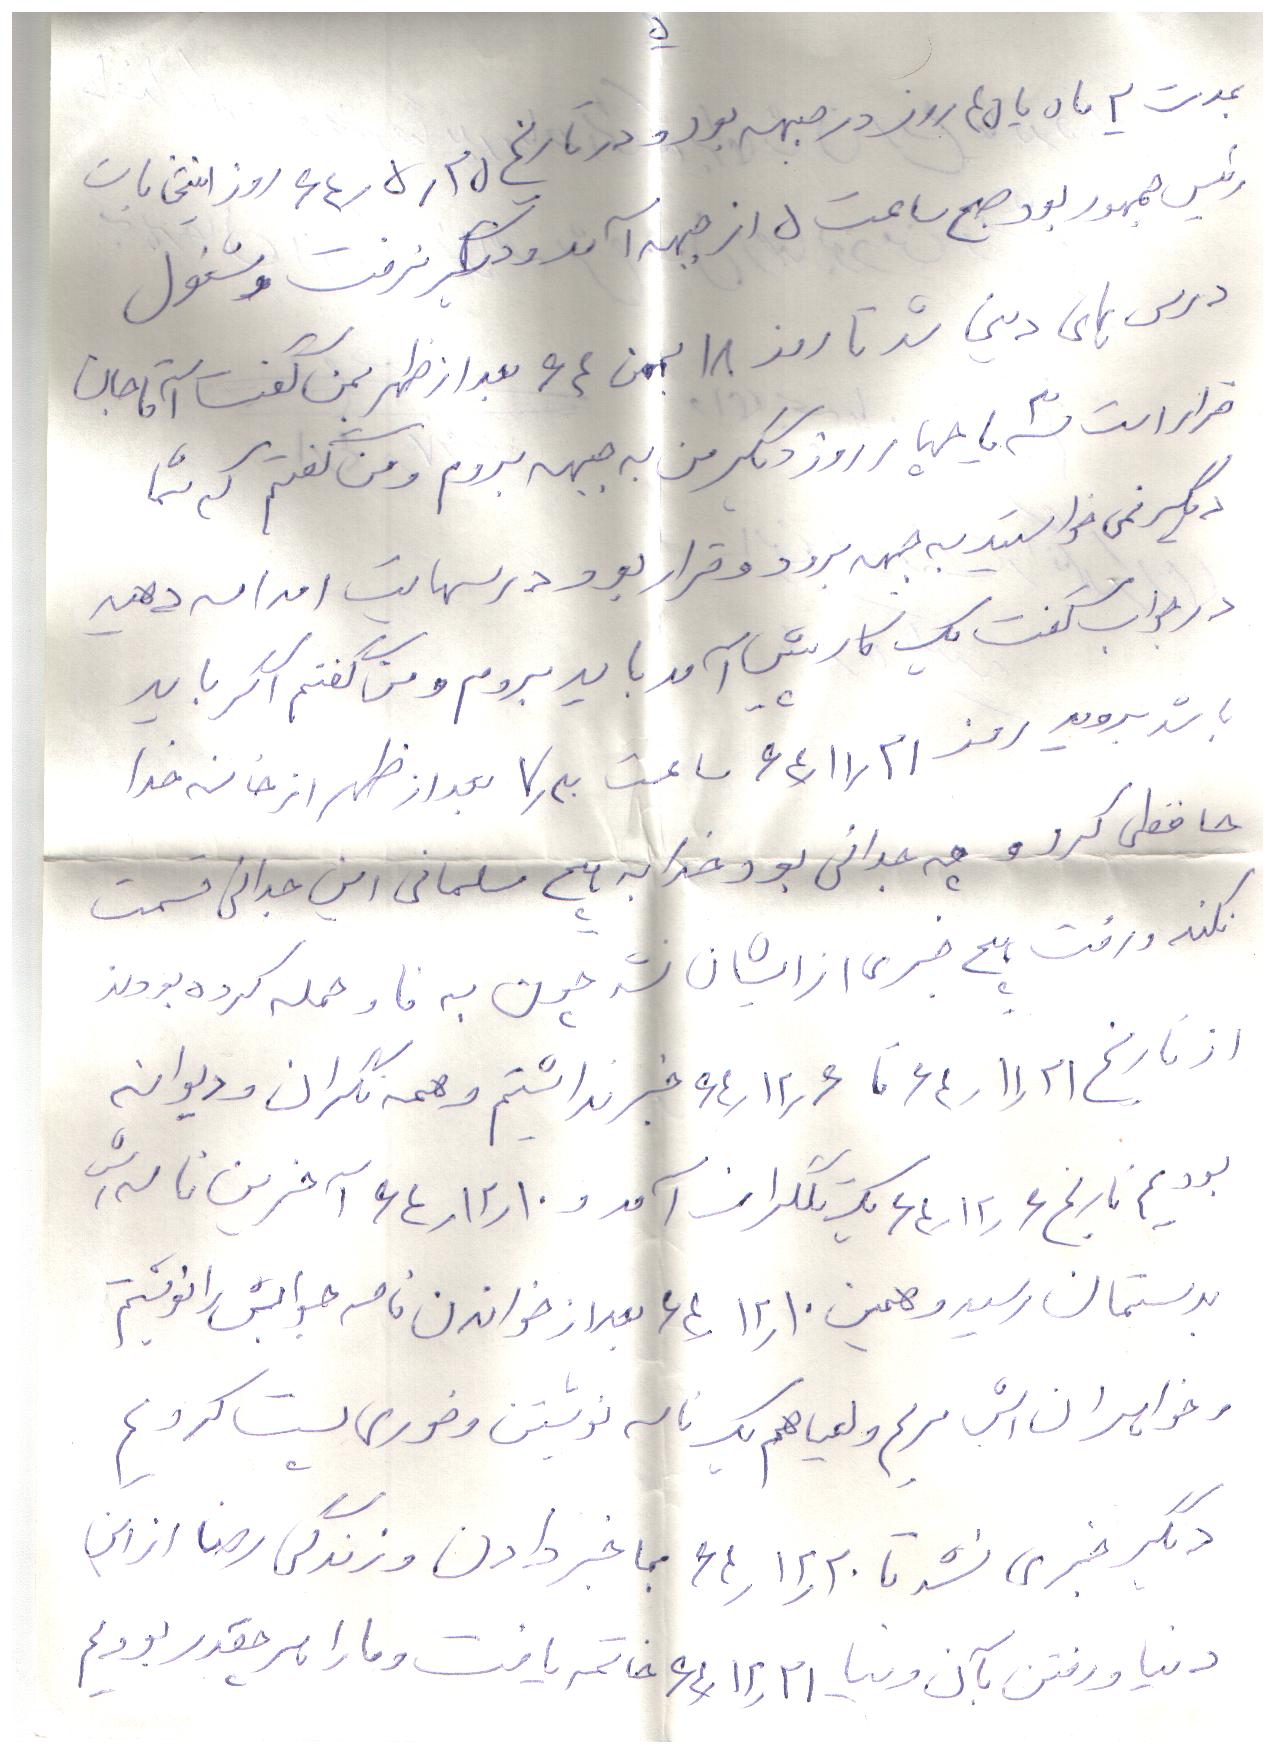 ۵
بمدت ۲ ماه یا ۴۵ روز در جبهه بود و در تاریخ ۶۴٫۵٫۲۵ روز انتخابات
رئیس جمهور بود صبح ساعت ۵ از جبهه آمد و دیگر نرفت و مشغول
درس های دینی شد تا روز ۱۸ بهمن ۶۴ بعد از ظهر بمن گفت آقا جان
قرار است سه یا چهار روز دیگر من به جبهه بروم و من گفتم که شما
دیگر نمی خواستید به جبهه بروید و قرار بود درسهایت ادامه دهید
در جواب گفت یک کار پیش آمد باید بروم و من گفتم اگر باید
باشد بروید روز ۶۴٫۱۱٫۲۱ ساعت بعد از ظهر از خانه خدا
حافظی کرد و چه جدائی بود خدا به هیچ مسلمانی این جدائی قسمت
نکند و رفت هیچ خبری از ایشان نشد چون به فاو حمله کرده بودند
از تاریخ ۶۴٫۱۱٫۲۱ تا ۶۴٫۱۲٫۶ خبر نداشتیم و همه نگران و دیوانه
بودیم تاریخ ۶۴٫۱۲٫۶ یک تلگراف آمد و ۶۴٫۱۲٫۱۰ آخرین نامه اش
بدستمان رسید و همین ۶۴٫۱۲٫۱۰ بعد از خواندن نامه جوابش را نوشتم
و خواهران اش مریم و لعیا هم یک نامه نوشتن و فوری پست کردیم
دیگر خبری نشد تا ۶۴٫۱۲٫۲۰ بما خبر دادن و زندگی رضا از این
دنیا و رفتن بآن دنیا ۶۴٫۱۲٫۲۱ خاتمه یافت و ما را هر چقدر بودیم